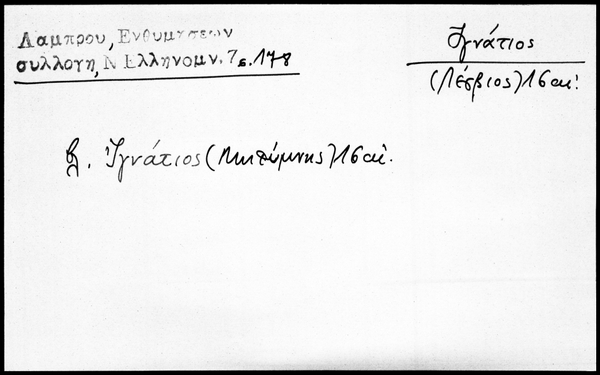 Λαμπρου, Ενθυμησεων
συλλογη, Ν Ελληνομν. 7 σ. 178
Ἰγνάτιος
(Λέσβιος) 16 αἰ.
βλ. Ἰγνάτιος (Μηθύμνης) 16 αἰ.